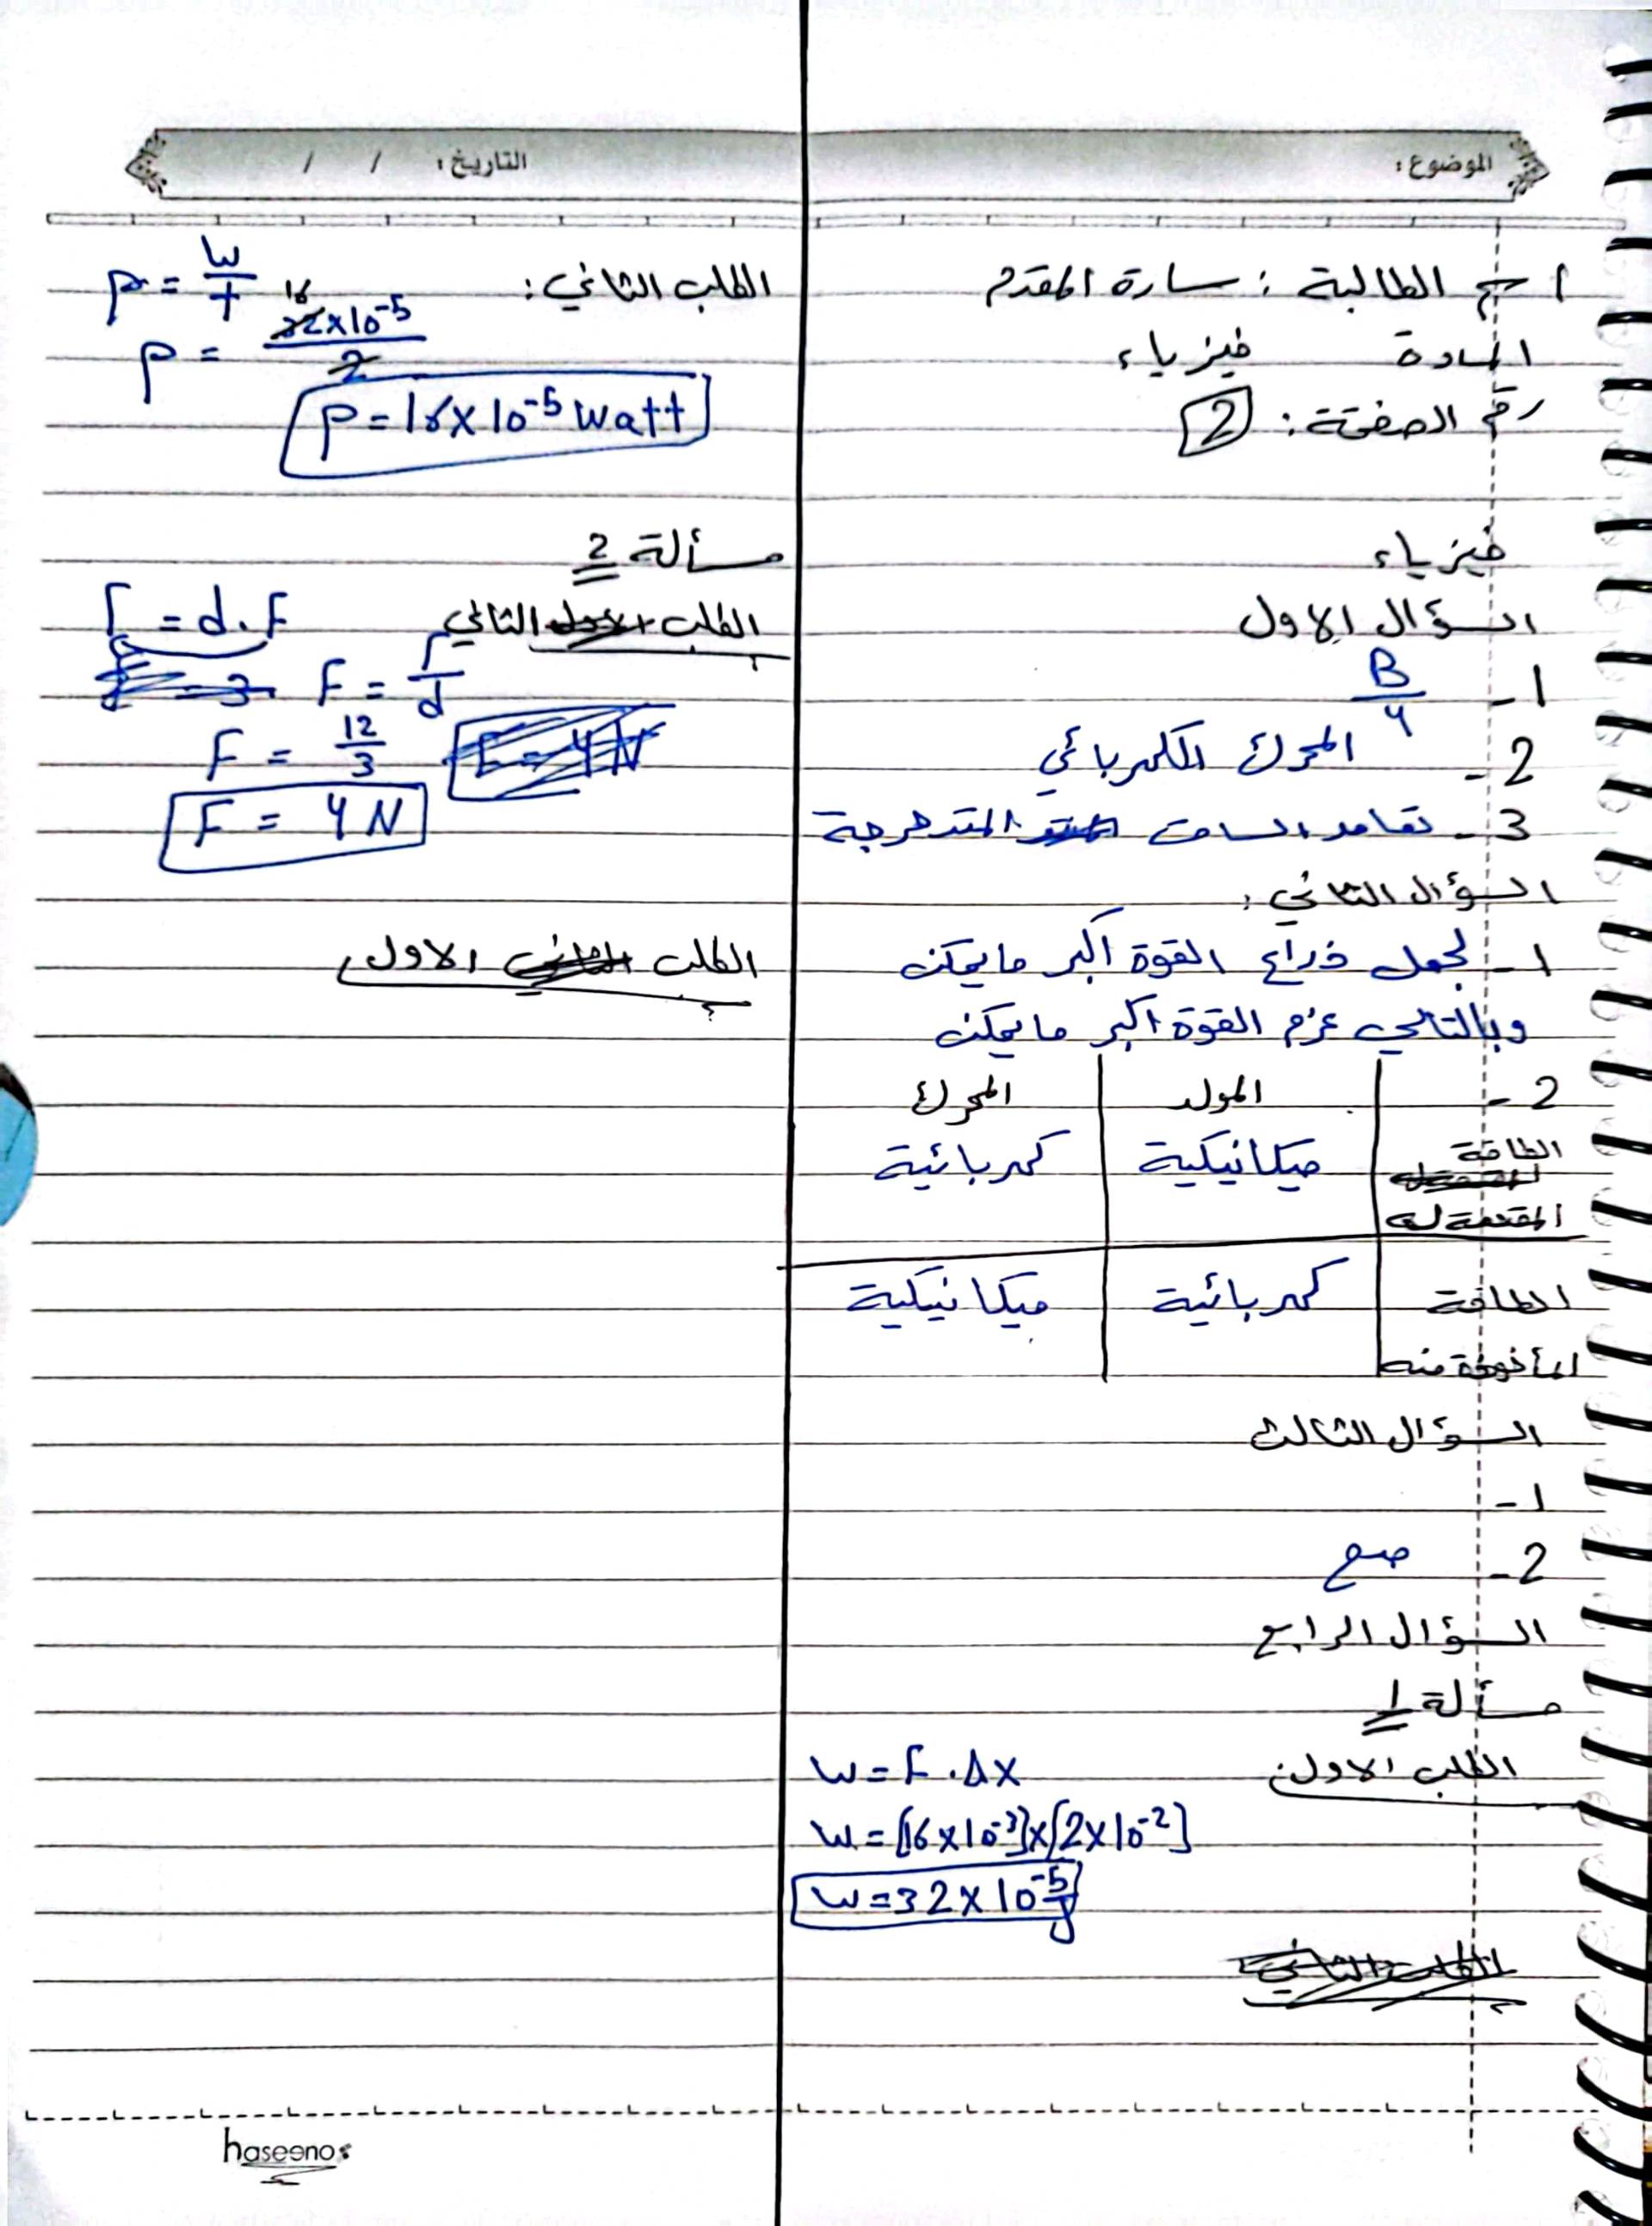 الموضوع:
التاريخ: / /
اسم الطالبة : سارة المقدم
المادة فيزياء
رقم الصفحة: 2
فيزياء
السؤال الاول
1- B/4
2- المحرك الكهربائي
3- تقامد السامت المتدحرجة
السؤال الثاني:
1- لجعل ذراع القوة أكبر ما يمكن
وبالتالي عزم القوة اكبر ما يمكن
2- المولد المحرك
الطاقة المقدمة له ميكانيكية كهربائية
الطاقة المأخوذة منه كهربائية ميكانيكية
السؤال الثالث
1-
2- صح
السؤال الرابع
مسألة 1
الطلب الاول:
W = F . Δx
W = [16 x 10⁻³] x [2 x 10⁻²]
W = 32 x 10⁻⁵ J
الطلب الثاني:
P = W/t
P = 32x10⁻⁵/2
16
P = 16 x 10⁻⁵ watt
مسألة 2
الطلب الثاني
Γ = d . F
F = Γ/d
F = 12/3
F = 4 N
الطلب الاول
haseeno